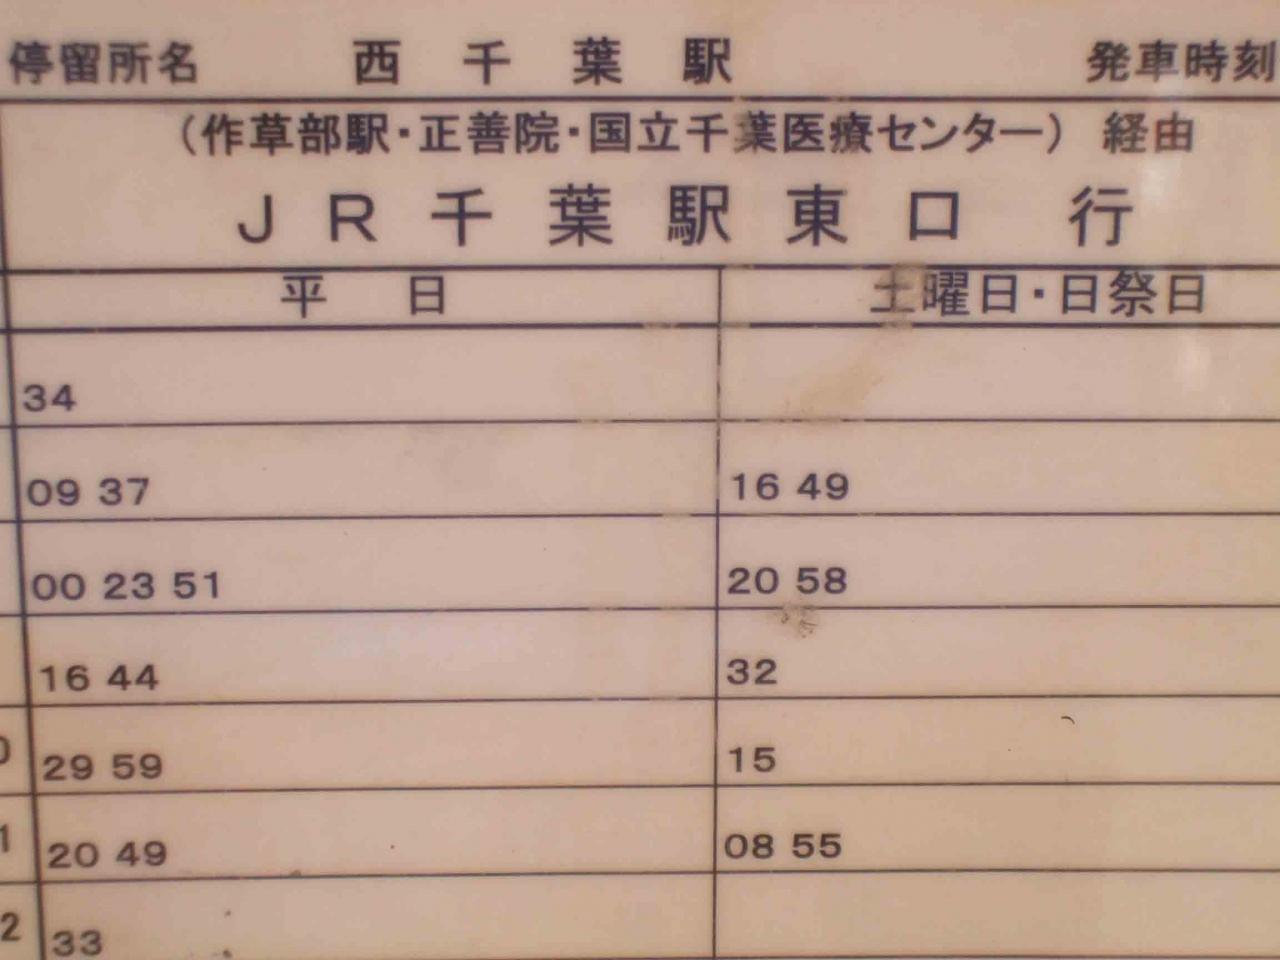 停留所名 西千葉駅 発車時刻
(作草部駅・正善院・国立千葉医療センター) 経由
JR千葉駅東口 行
平日 土曜日・日祭日
34
09 37 16 49
00 23 51 20 58
16 44 32
0 29 59 15
1 20 49 08 55
2 33